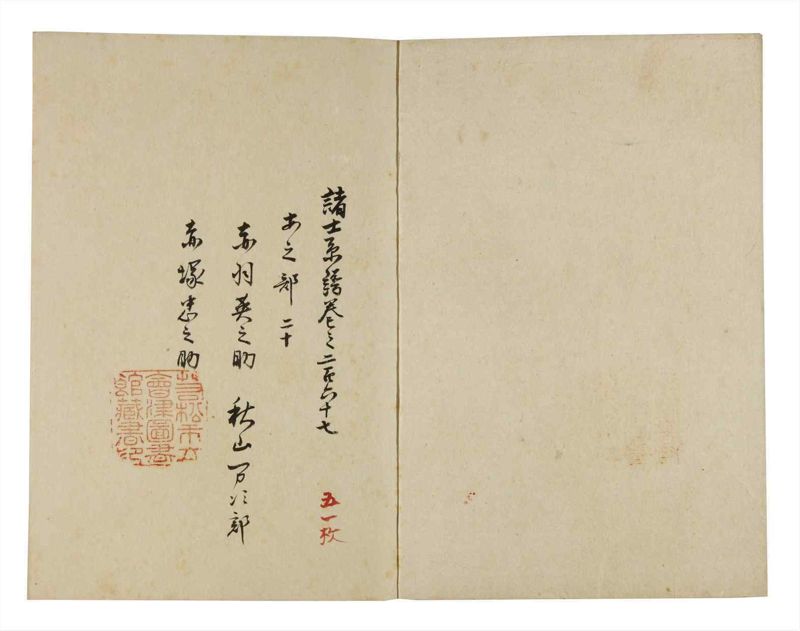 諸士系譜巻之二百六十七
五一枚
あ之部 二十
赤羽英之助 秋山万次郎
赤塚忠之助
若松市立
會津圖書
館藏書印